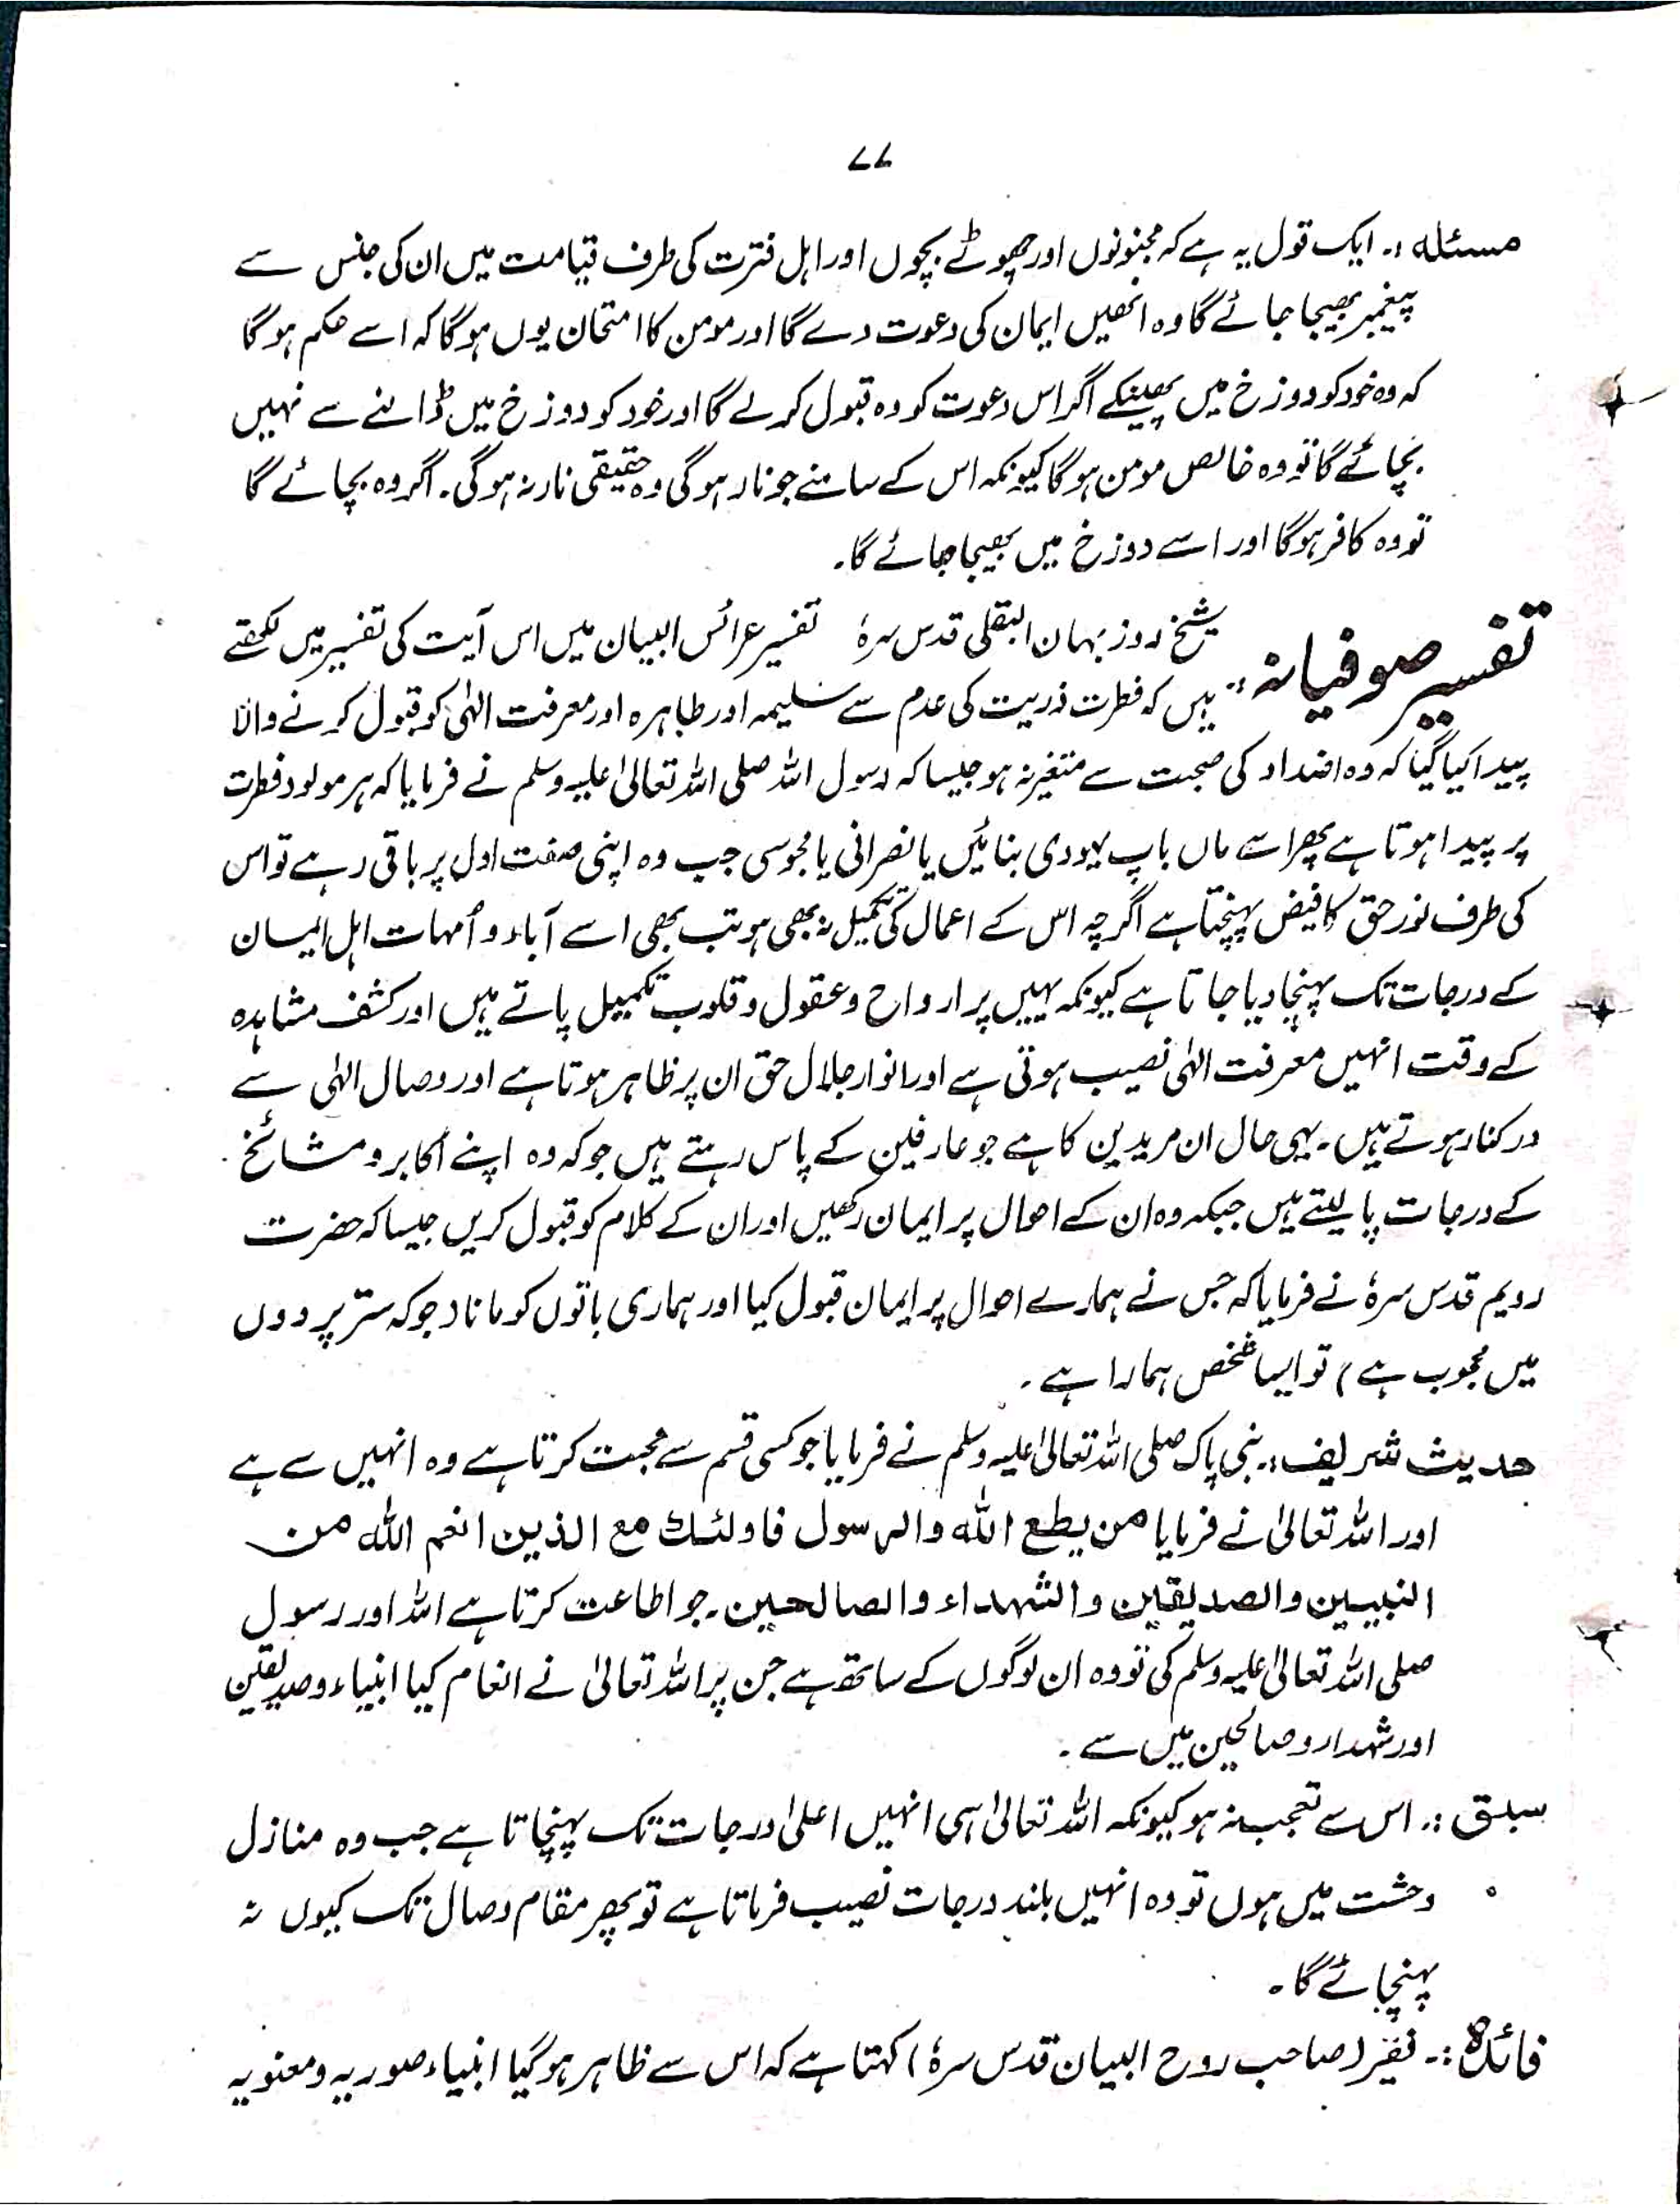 ۷۷
مسئلہ :۔ ایک قول یہ ہے کہ مجنونوں اور چھوٹے بچوں اور اہل فترت کی طرف قیامت میں ان کی جنس سے
پیغمبر بھیجا جائے گا وہ انھیں ایمان کی دعوت دے گا اور مومن کا امتحان یوں ہوگا کہ اسے حکم ہوگا
کہ وہ خود کو دوزخ میں پھینکے اگر اس دعوت کو وہ قبول کرلے گا اور خود کو دوزخ میں ڈالنے سے نہیں
بچائے گا تو وہ خالص مومن ہوگا کیونکہ اس کے سامنے جو نار ہوگی وہ حقیقی نار نہ ہوگی۔ اگر وہ بچائے گا
تو وہ کافر ہوگا اور اسے دوزخ میں بھیجا جائے گا۔
تفسیر صوفیانہ :۔ شیخ روز بہان البقلی قدس سرہٗ تفسیر عرائس البیان میں اس آیت کی تفسیر میں لکھتے
ہیں کہ فطرت ذریت کی عدم سے سلیمہ اور طاہرہ اور معرفت الٰہی کو قبول کرنے والا
پیدا کیا گیا کہ وہ اضداد کی صحبت سے متغیر نہ ہو جیسا کہ رسول اللہ صلی اللہ تعالیٰ علیہ وسلم نے فرمایا کہ ہر مولود فطرت
پر پیدا ہوتا ہے پھر اسے ماں باپ یہودی بنائیں یا نصرانی یا مجوسی جب وہ اپنی صفت اول پر باقی رہے تو اس
کی طرف نور حق کا فیض پہنچتا ہے اگرچہ اس کے اعمال کی تکمیل نہ بھی ہو تب بھی اسے آباء و اُمہات اہل ایمان
کے درجات تک پہنچا دیا جاتا ہے کیونکہ یہیں پر ارواح و عقول و قلوب تکمیل پاتے ہیں اور کشف مشاہدہ
کے وقت انہیں معرفت الٰہی نصیب ہوتی ہے اور انوار جلال حق ان پر ظاہر ہوتا ہے اور وصال الٰہی سے
درکنار ہوتے ہیں۔ یہی حال ان مریدین کا ہے جو عارفین کے پاس رہتے ہیں جو کہ وہ اپنے اکابر و مشائخ
کے درجات پالیتے ہیں جبکہ وہ ان کے احوال پر ایمان رکھیں اور ان کے کلام کو قبول کریں جیسا کہ حضرت
رویم قدس سرہٗ نے فرمایا کہ جس نے ہمارے احوال پر ایمان قبول کیا اور ہماری باتوں کو مانا (جو کہ ستر پردوں
میں محجوب ہے) تو ایسا شخص ہمارا ہے۔
حدیث شریف :۔ نبی پاک صلی اللہ تعالیٰ علیہ وسلم نے فرمایا جو کسی قسم سے محبت کرتا ہے وہ انہیں سے ہے
اور اللہ تعالیٰ نے فرمایا من یطع اللہ والرسول فاولئک مع الذین انعم اللہ من
النبیین والصدیقین والشہداء والصالحین۔ جو اطاعت کرتا ہے اللہ اور رسول
صلی اللہ تعالیٰ علیہ وسلم کی تو وہ ان لوگوں کے ساتھ ہے جن پر اللہ تعالیٰ نے انعام کیا انبیاء و صدیقین
اور شہدار و صالحین میں سے۔
سبق :۔ اس سے تعجب نہ ہو کیونکہ اللہ تعالیٰ ہی انہیں اعلیٰ درجات تک پہنچاتا ہے جب وہ منازل
وحشت میں ہوں تو وہ انہیں بلند درجات نصیب فرماتا ہے تو پھر مقام وصال تک کیوں نہ
پہنچائے گا۔
فائدہ :۔ فقیر (صاحب روح البیان قدس سرہٗ) کہتا ہے کہ اس سے ظاہر ہوگیا انبیاء صوریہ و معنویہ